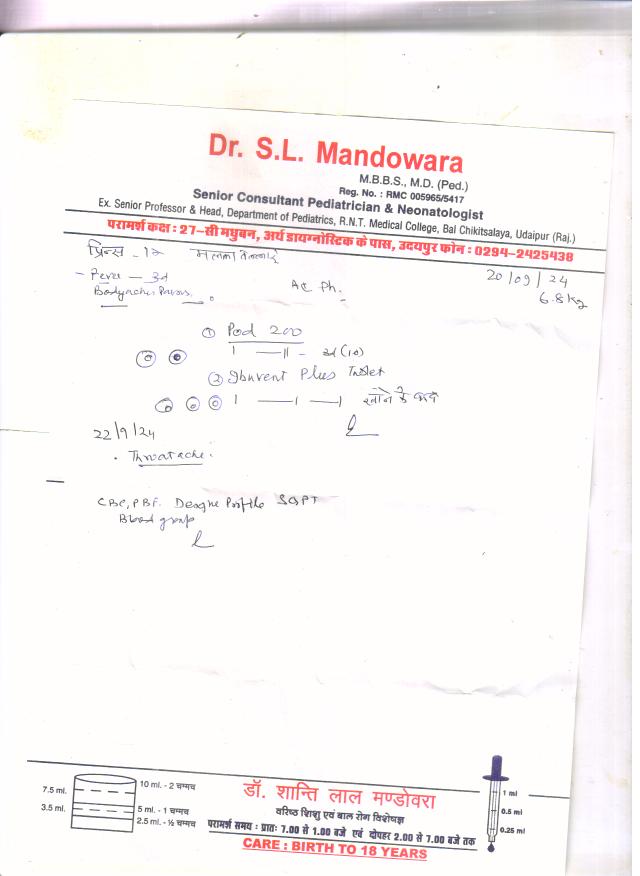 Dr. S.L. Mandowara
M.B.B.S., M.D. (Ped.)
Reg. No. : RMC 005965/5417
Senior Consultant Pediatrician & Neonatologist
Ex. Senior Professor & Head, Department of Pediatrics, R.N.T. Medical College, Bal Chikitsalaya, Udaipur (Raj.)
परामर्श कक्ष : 27-सी मधुबन, अर्थ डायग्नोस्टिक के पास, उदयपुर फोन : 0294-2425438
प्रिन्स - 12
20/09/24
- Fever - 3d
6.8 kg
Bodyache
① Pod 200
② Ibuvent Plus Tablet
खाने के बाद
22/9/24
. Throatache.
CBC, PBF. Dengue Profile SGPT
Blood group
7.5 ml.
3.5 ml.
10 ml. - 2 चम्मच
5 ml. - 1 चम्मच
2.5 ml. - ½ चम्मच
डॉ. शान्ति लाल मण्डोवरा
वरिष्ठ शिशु एवं बाल रोग विशेषज्ञ
परामर्श समय : प्रातः 7.00 से 1.00 बजे एवं दोपहर 2.00 से 7.00 बजे तक
CARE : BIRTH TO 18 YEARS
1 ml
0.5 ml
0.25 ml